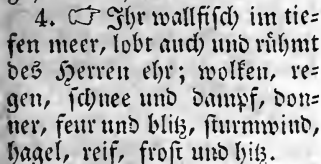 4. ☞ Ihr wallfisch im tie=
fen meer, lobt auch und rühmt
des Herren ehr; wolken, re=
gen, schnee und dampf, don=
ner, feur und blitz, sturmwind,
hagel, reif, frost und hitz.